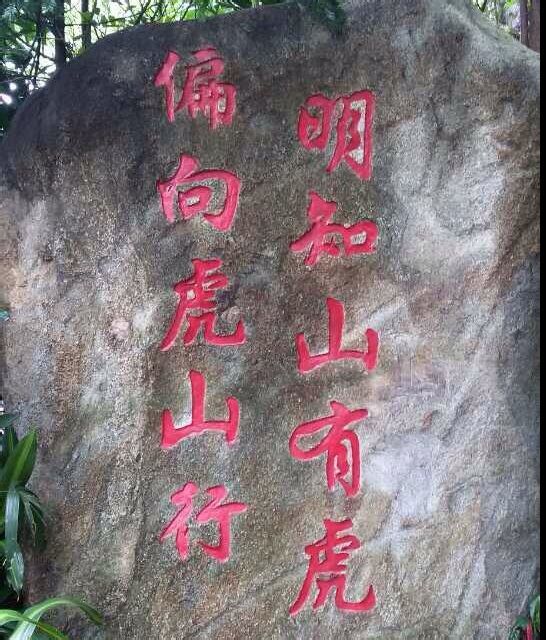 明知山有虎
偏向虎山行